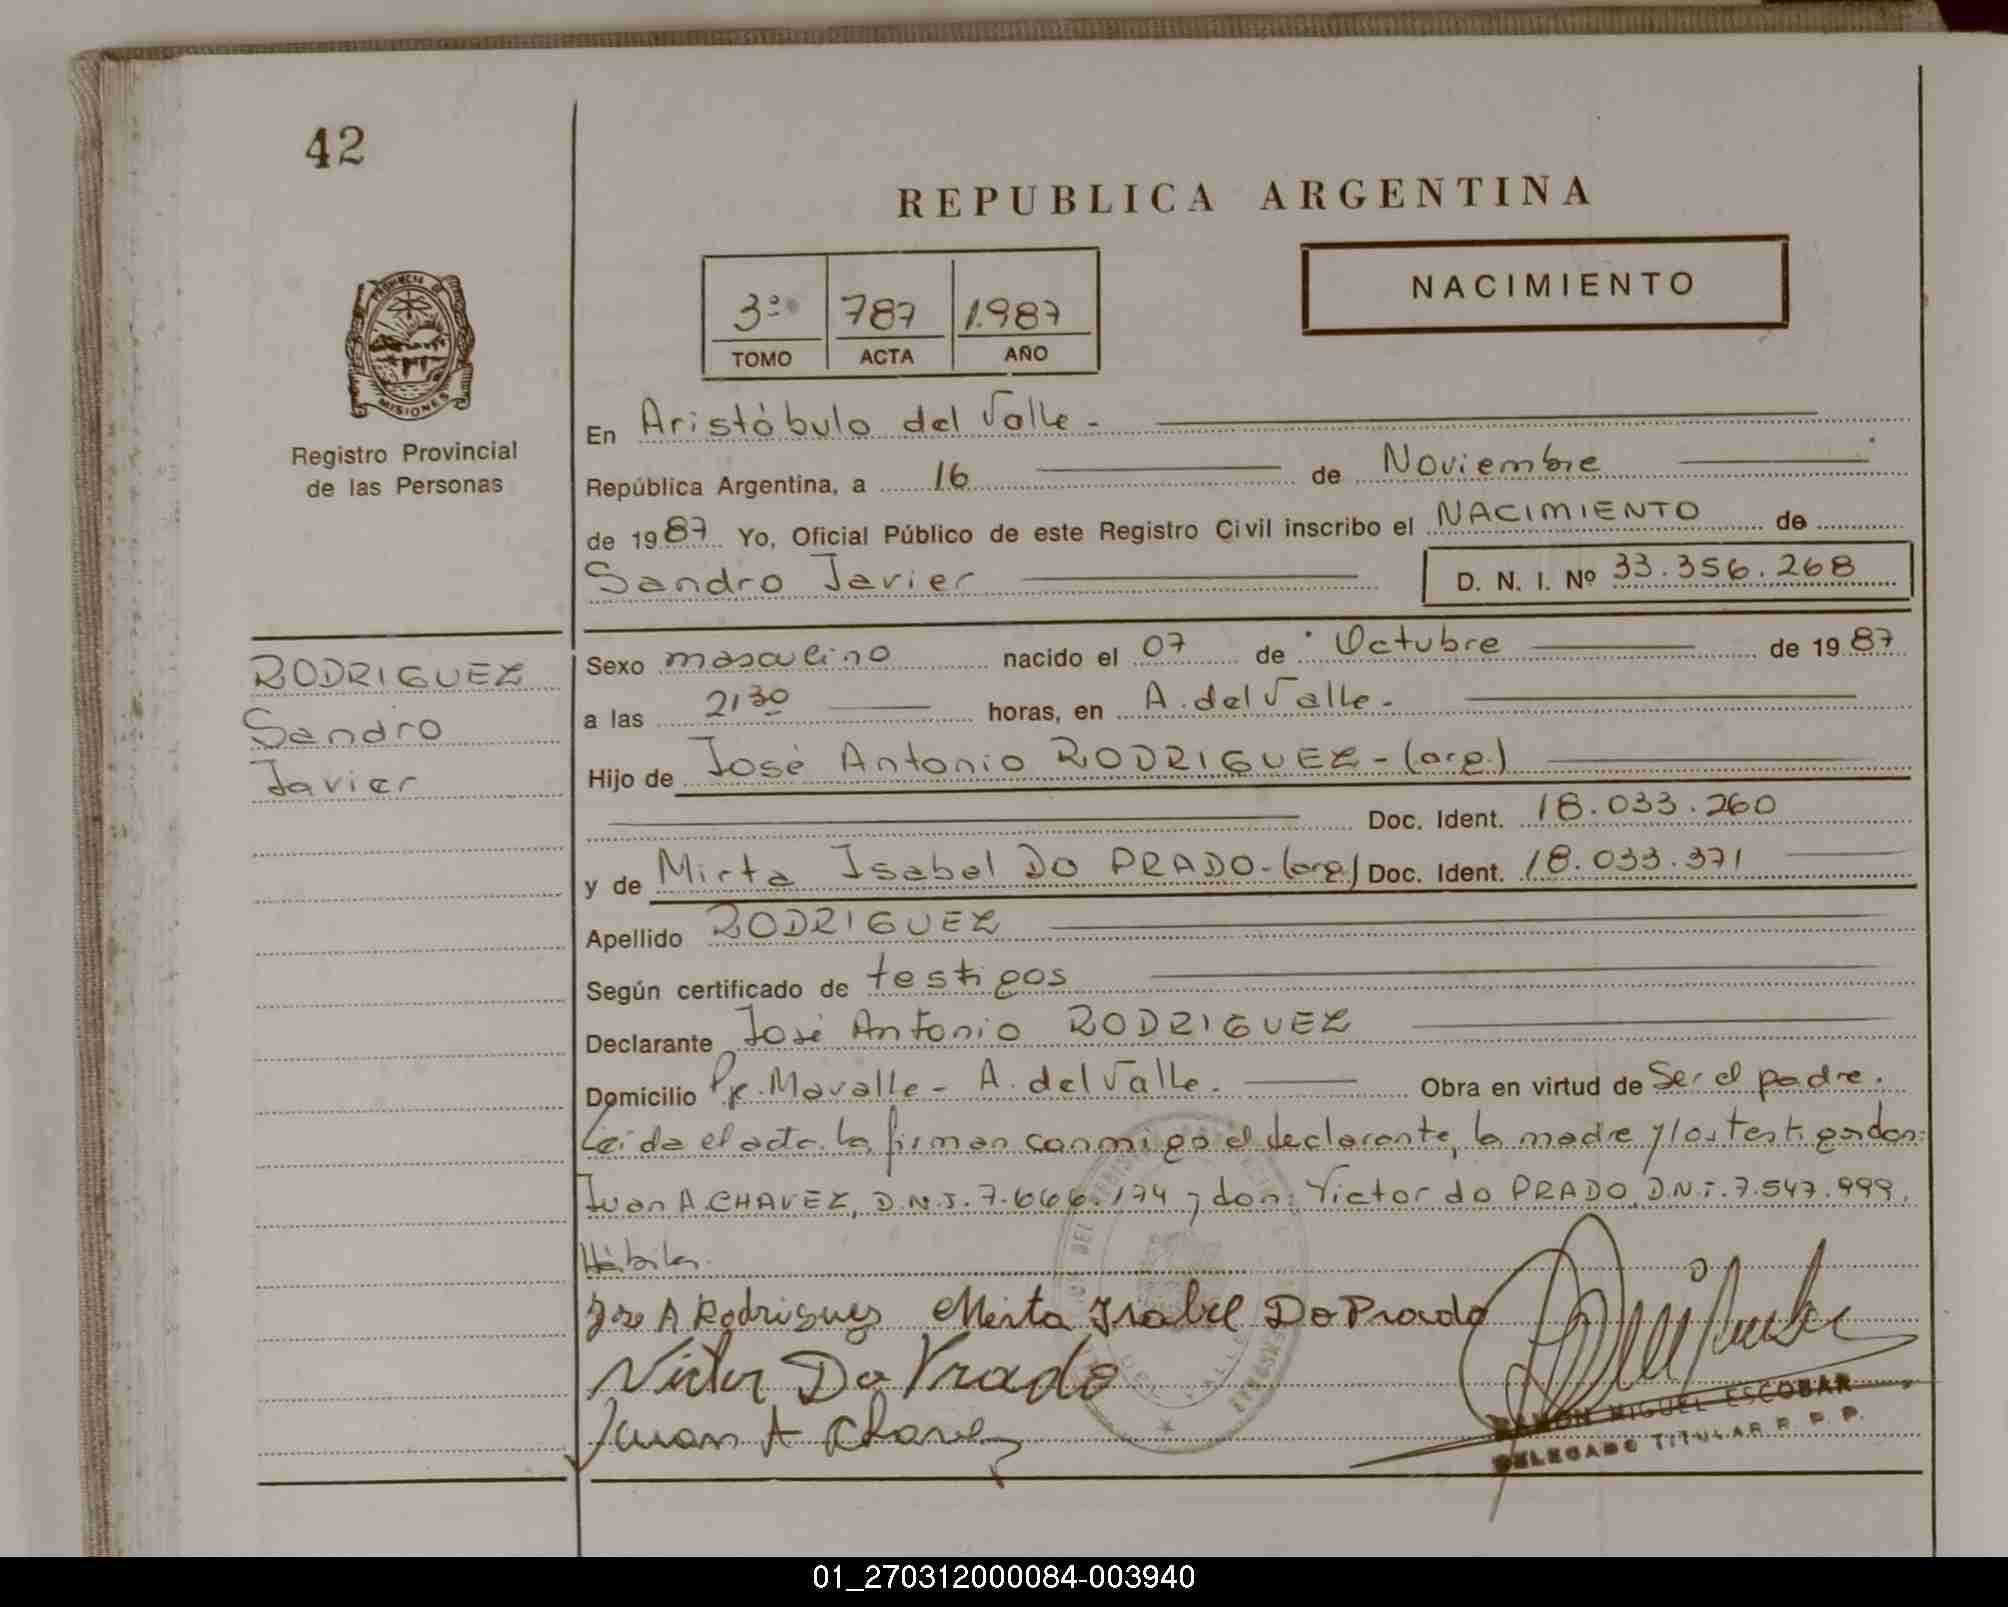 42
REPUBLICA ARGENTINA
NACIMIENTO
3º 787 1.987
TOMO ACTA AÑO
PROVINCIA DE
MISIONES
Registro Provincial
de las Personas
En Aristóbulo del Valle.-
República Argentina, a 16 de Noviembre
de 1987 Yo, Oficial Público de este Registro Civil inscribo el NACIMIENTO de
Sandro Javier D. N. I. Nº 33.356.268
RODRIGUEZ
Sandro
Javier
Sexo masculino nacido el 07 de Octubre de 1987
a las 21 30 horas, en A. del Valle.-
Hijo de José Antonio RODRIGUEZ-(arg.)
Doc. Ident. 18.033.260
y de Mirta Isabel DO PRADO-(arg) Doc. Ident. 18.033.371
Apellido RODRIGUEZ
Según certificado de testigos
Declarante José Antonio RODRIGUEZ
Domicilio Mavalle- A. del Valle. Obra en virtud de Ser el padre.
Leída el acta la firman conmigo el declarante, la madre y los testigos don:
Juan A. CHAVEZ, D.N.I. 7.666.174 y don: Victor do PRADO D.N.I. 7.547.999.
Hábiles.
Jose A Rodriguez Mirta Isabel Do Prado
Victor Do Prado
Juan A Chavez
RAMON MIGUEL ESCOBAR
DELEGADO TITULAR R. P. P.
01_270312000084-003940